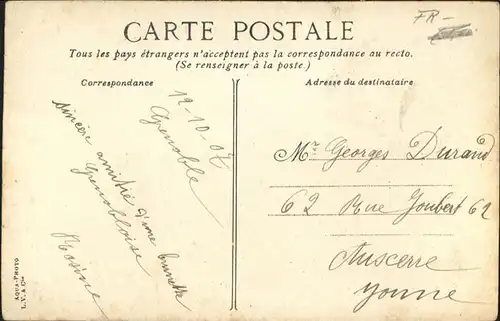 FR-
CARTE POSTALE
Tous les pays étrangers n'acceptent pas la correspondance au recto.
(Se renseigner à la poste.)
Correspondance
Adresse du destinataire
12-10-07
Grenoble
Sincère amitié d'une brunette
Grenobloise
Rosine
Mr Georges Durand
62 Rue Joubert 62
Auxcerre
Yonne
AQUA-PHOTO
L.V. & Cie